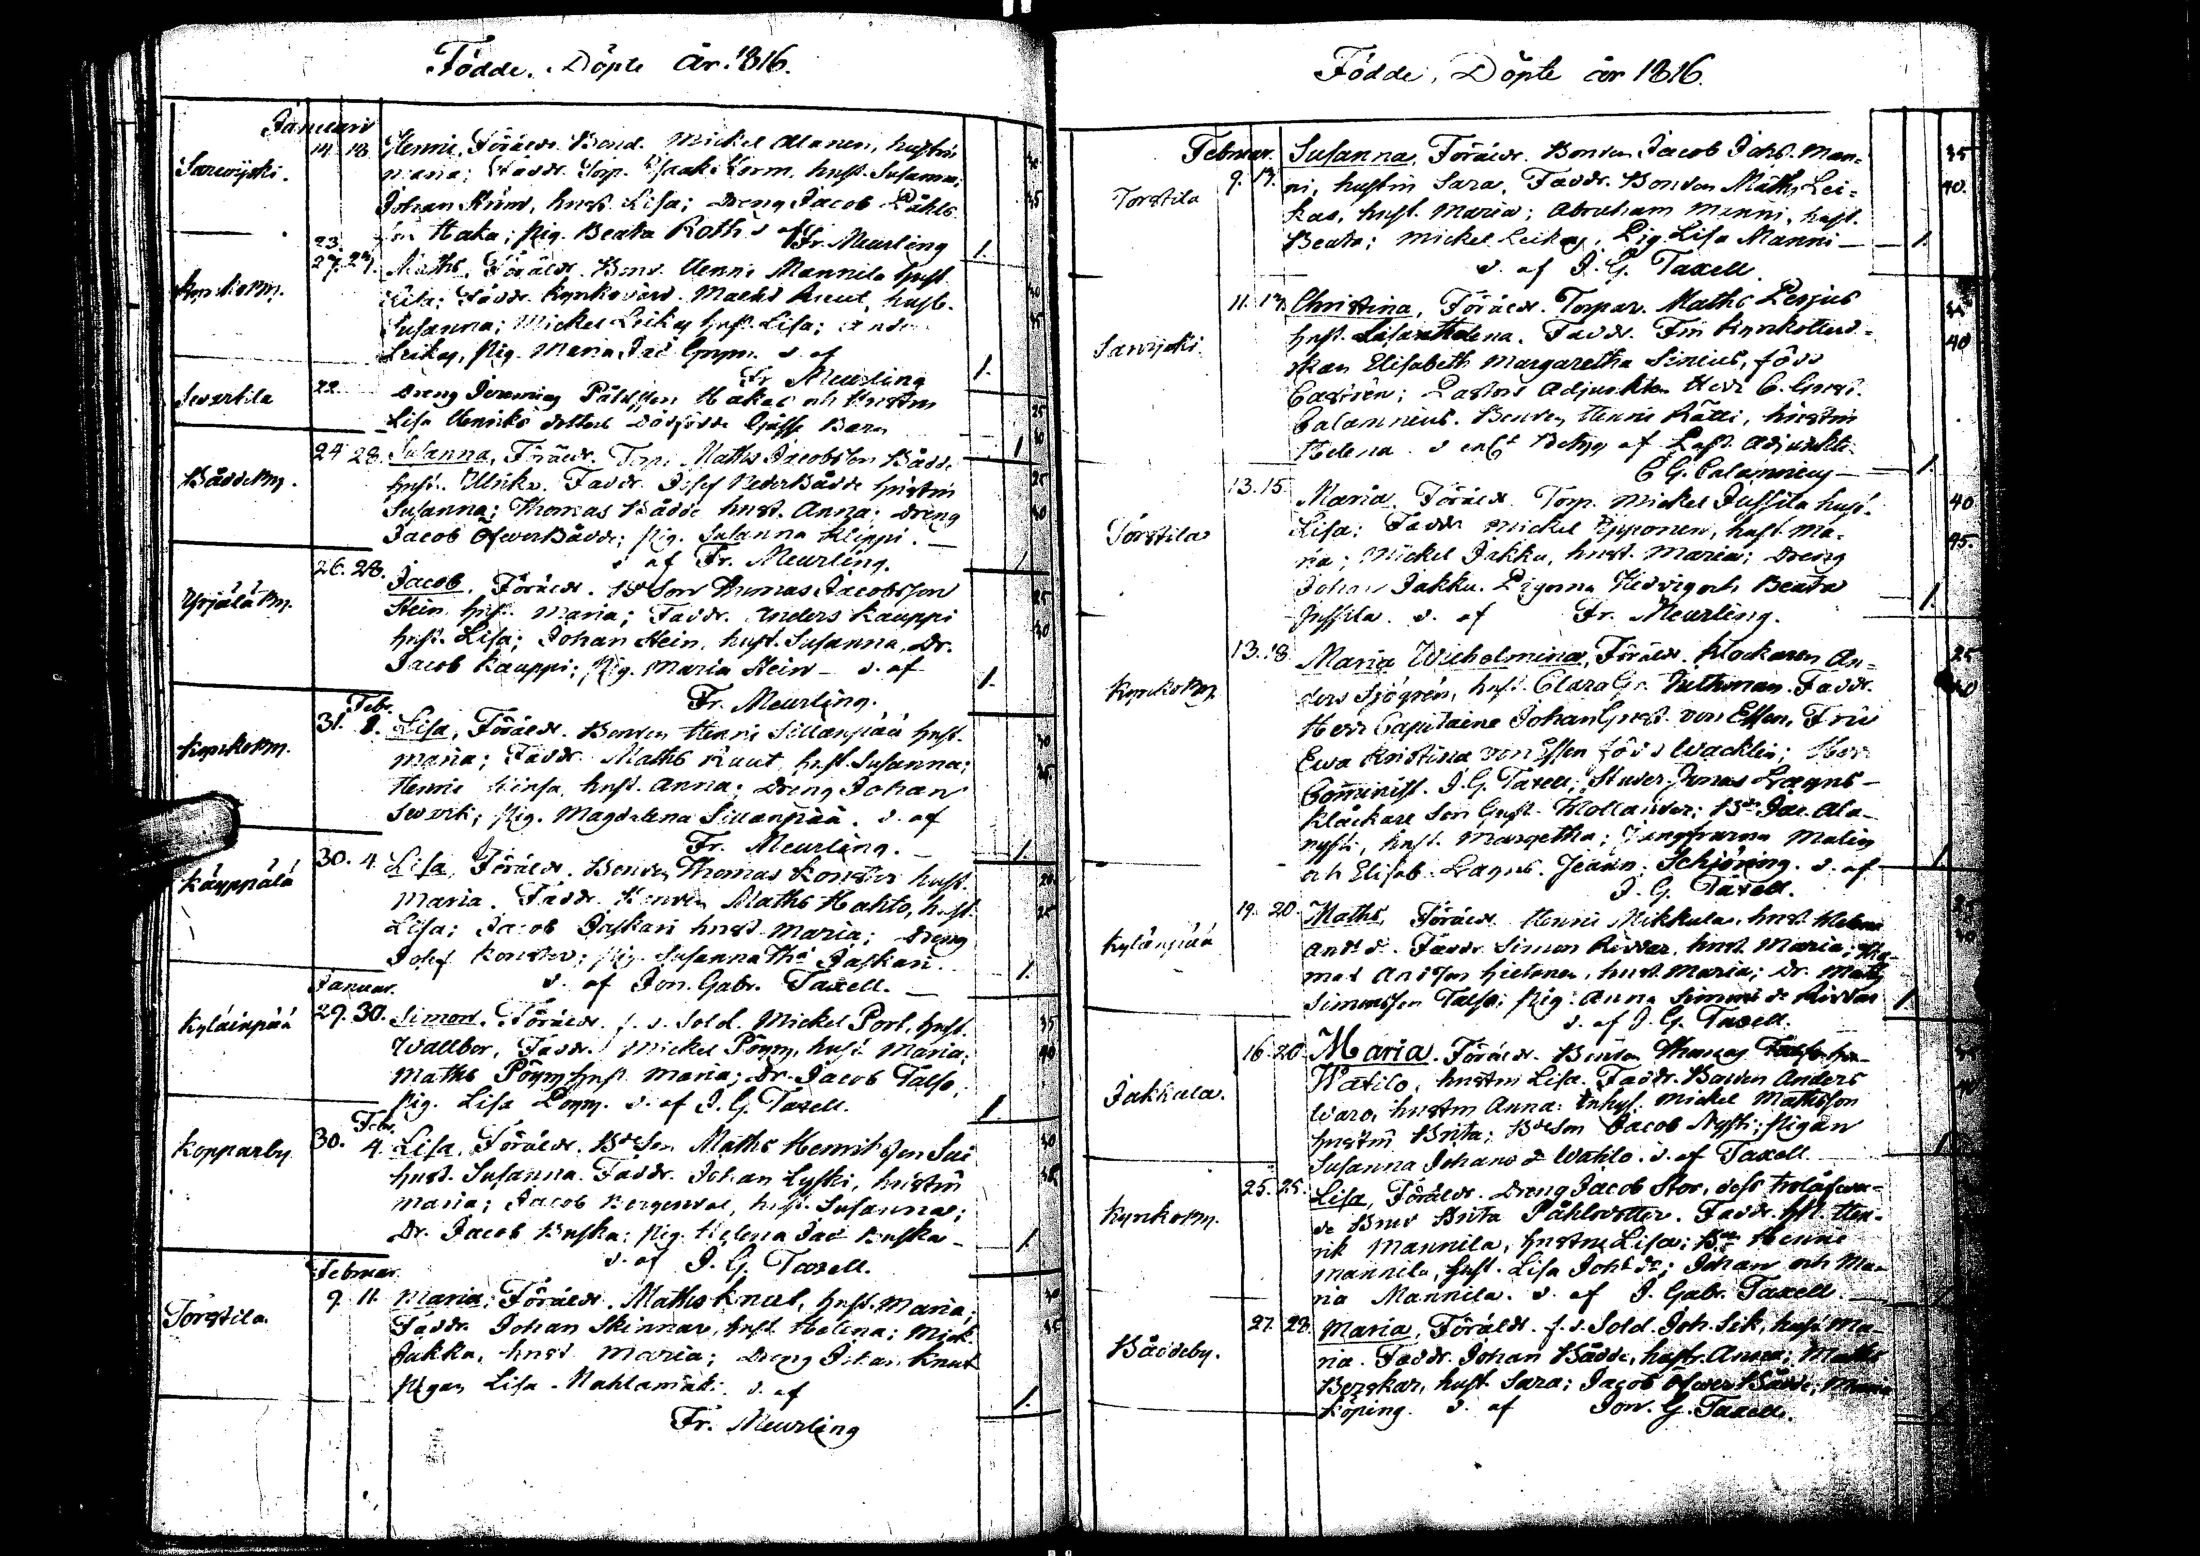 Födde, Döpte År 1816.
Januari
Sarwijoki. 14. 18. Henric, Föräldr. Bond. Mickel Alanen, hustrin
maria; Faddr. Torp. Isaak Korm, hust. Susanna;
Johan Riim, hust. Lisa; Dreng Jacob Påhls
son Haka; Pig. Beata Roth d. af Fr. Meurling 1.
23.
Kyrkoby. 27. 27. Maths, Föräldr. Bond. Henric Mannila hust
Lisa; Faddr. Kyrkovärd. Maths Knut, hust.
Susanna; Mickel Leikas hust. Lisa;
Leikas, Pig. Maria Jac d. af
Fr. Meurling 1.
Sevartila 22. Dreng Jeremias Påhlsson Hakas och hustrin
Lisa Henriks dotters dödfödde Gosse Barn 1
Båddeby. 24 28. Susanna, Föräldr. Torp. Maths Jacobsson Bådde
hust. Ulrika. Faddr. Josef NederBådde hustrin
Susanna; Thomas Bådde hust. Anna; Dreng
Jacob ÖfwerBådde; Pig. Susanna Klippi.
d. af Fr. Meurling. 1
Yrjäläby. 26. 28. Jacob, Föräldr. Bd Son Thomas Jacobsson
Hein hust. Maria; Faddr. Anders Kauppi
hust. Lisa; Johan Hein, hust. Susanna, Dr.
Jacob Kauppi; Pig. Maria Hein d. af 1.
Fr. Meurling.
Febr.
Kyrkoby. 31. Lisa, Föräldr. Bonden Henric Sillanpää hust.
maria; Faddr. Maths Knut, hust. Susanna;
Henric hust. Anna; Dreng Johan
Pig. Magdalena Sillanpää. d. af
Fr. Meurling. 1.
Käyppälä 30. 4. Lisa, Föräldr. Bonden Thomas Konster hust.
Maria. Faddr. Bonden Maths Hahto, hust.
Lisa; Jacob Paskari hust. Maria; Dreng
Josef Konster; Pig. Susanna Ths Paskari.
d. af Jon. Gabr. Taxell. 1.
Januar.
Kyläinpää 29. 30. Simon. Föräldr. f. d. Sold. Mickel Port, hust.
Wallbor, Faddr. Mickel Pöyry, hust. Maria;
Maths Pöyry hust. Maria; Dr. Jacob Talso,
Pig. Lisa Pöyry. d. af J. G. Taxell. 1.
Febr.
Kopparby 30. 4. Lisa, Föräldr. Bd Son Maths Henriksson Sui
hust. Susanna. Faddr. Johan Lyski, hustrin
Maria; Jacob Bergendal, hust. Susanna;
Dr. Jacob Buska; Pig. Helena Jac Buska
d. af J. G. Taxell. 1.
Februar.
Torstila. 9. 11. Maria; Föräldr. Maths Knut, hust. Maria;
Faddr. Johan Skinnar, hust. Helena; Mick
Jakku, hust. Maria; Dreng Johan Knut
Pigan Lisa Mahlamäki. d. af 1.
Fr. Meurling
Födde, Döpte år 1816.
Februar.
Torstila 9. 13. Susanna, Föräldr. Bonden Jacob Johs. Man-
ni, hustrin Sara, Faddr. Bonden Maths Lei-
kas, hust. Maria; Abraham Manni, hust.
Beata; Mickel Leikas, Pig. Lisa Manni 1.
d. af J. G. Taxell
Sarvijoki. 11. 13. Christina, Föräldr. Torpar. Maths Perjus
hust. Lisa Helena. Faddr. Fru Kyrkoherd-
skan Elisabeth Margaretha Simius, född
Castrén; Pastors Adjunkten Herr C. Gust.
Calamnius. Bonden Henric Kätti, hustrin
Helena d. enl. Betyg af Past. Adjunkten
C G. Calamnius 1.
Torstila 13. 15. Maria, Föräldr. Torp. Mickel Jussila hust.
Lisa; Faddr. Mickel Epponen, hust. Ma-
ria; Mickel Jakku, hust. Maria; Dreng
Johan Jakku. Pigorna Hedvig och Beata 1.
Jussila. d. af Fr. Meurling.
Kyrkoby 13. 18. Maria Wilhelmina, Föräldr. Klockaren An-
ders Sjögrén, hust. Clara Gr. Tuthman. Faddr.
Herr Capitaine Johan Gust. von Essen, Fru
Ewa Kristina von Essen född Wacklin; Herr
Comminist. J. G. Taxell; Studer. Jonas Lagus
Klåckare Son Gust. Mollander; Bdn Jac. Ala-
nysti, hust. Margetha; Jungfrurna Malin
och Elisab. Lagus. Jeann. Schjöring. d. af 1
J. G. Taxell.
Kyläinpää 19. 20. Maths, Föräldr. Henric Mikkula, hust. Helena
And: d. Faddr. Simon Riddar, hust. Maria; Tho-
mas Andsson Hietanen, hust. Maria; Dr. Maths
Simonsson Talso; Pig. Anna Simons d. Riddar 1.
d. af J. G. Taxell.
Jakkula. 16. 20. Maria. Föräldr. Bonden Thomas
Watilo, hustrin Lisa. Faddr. Bonden Anders
Waro, hustrin Anna; Inhys. Mickel Mathsson
hustrin Brita; Bd Son Jacob Nysti; Pigan
Susanna Johans d. Wahlo. d. af Taxell 1
Kyrkoby. 25. 25. Lisa, Föräldr. Dreng Jacob Stor, dess trolåfwa-
de Brud Brita Påhlsdotter. Faddr. Hen-
rik Mannila, hustru Lisa; Bdn Henric
Mannila, hust. Lisa Johs dr; Johan och Ma-
ria Mannila. d. af J. Gabr. Taxell.
Båddeby. 27. 28. Maria, Föräldr. f. d. Sold. Joh. Sik, hust. Ma-
ria. Faddr. Johan Bådde, hustr. Anna; Maths
Berskar, hust. Sara; Jacob Öfwer Bådde; Maria
Köping. d. af Jon. G. Taxell.